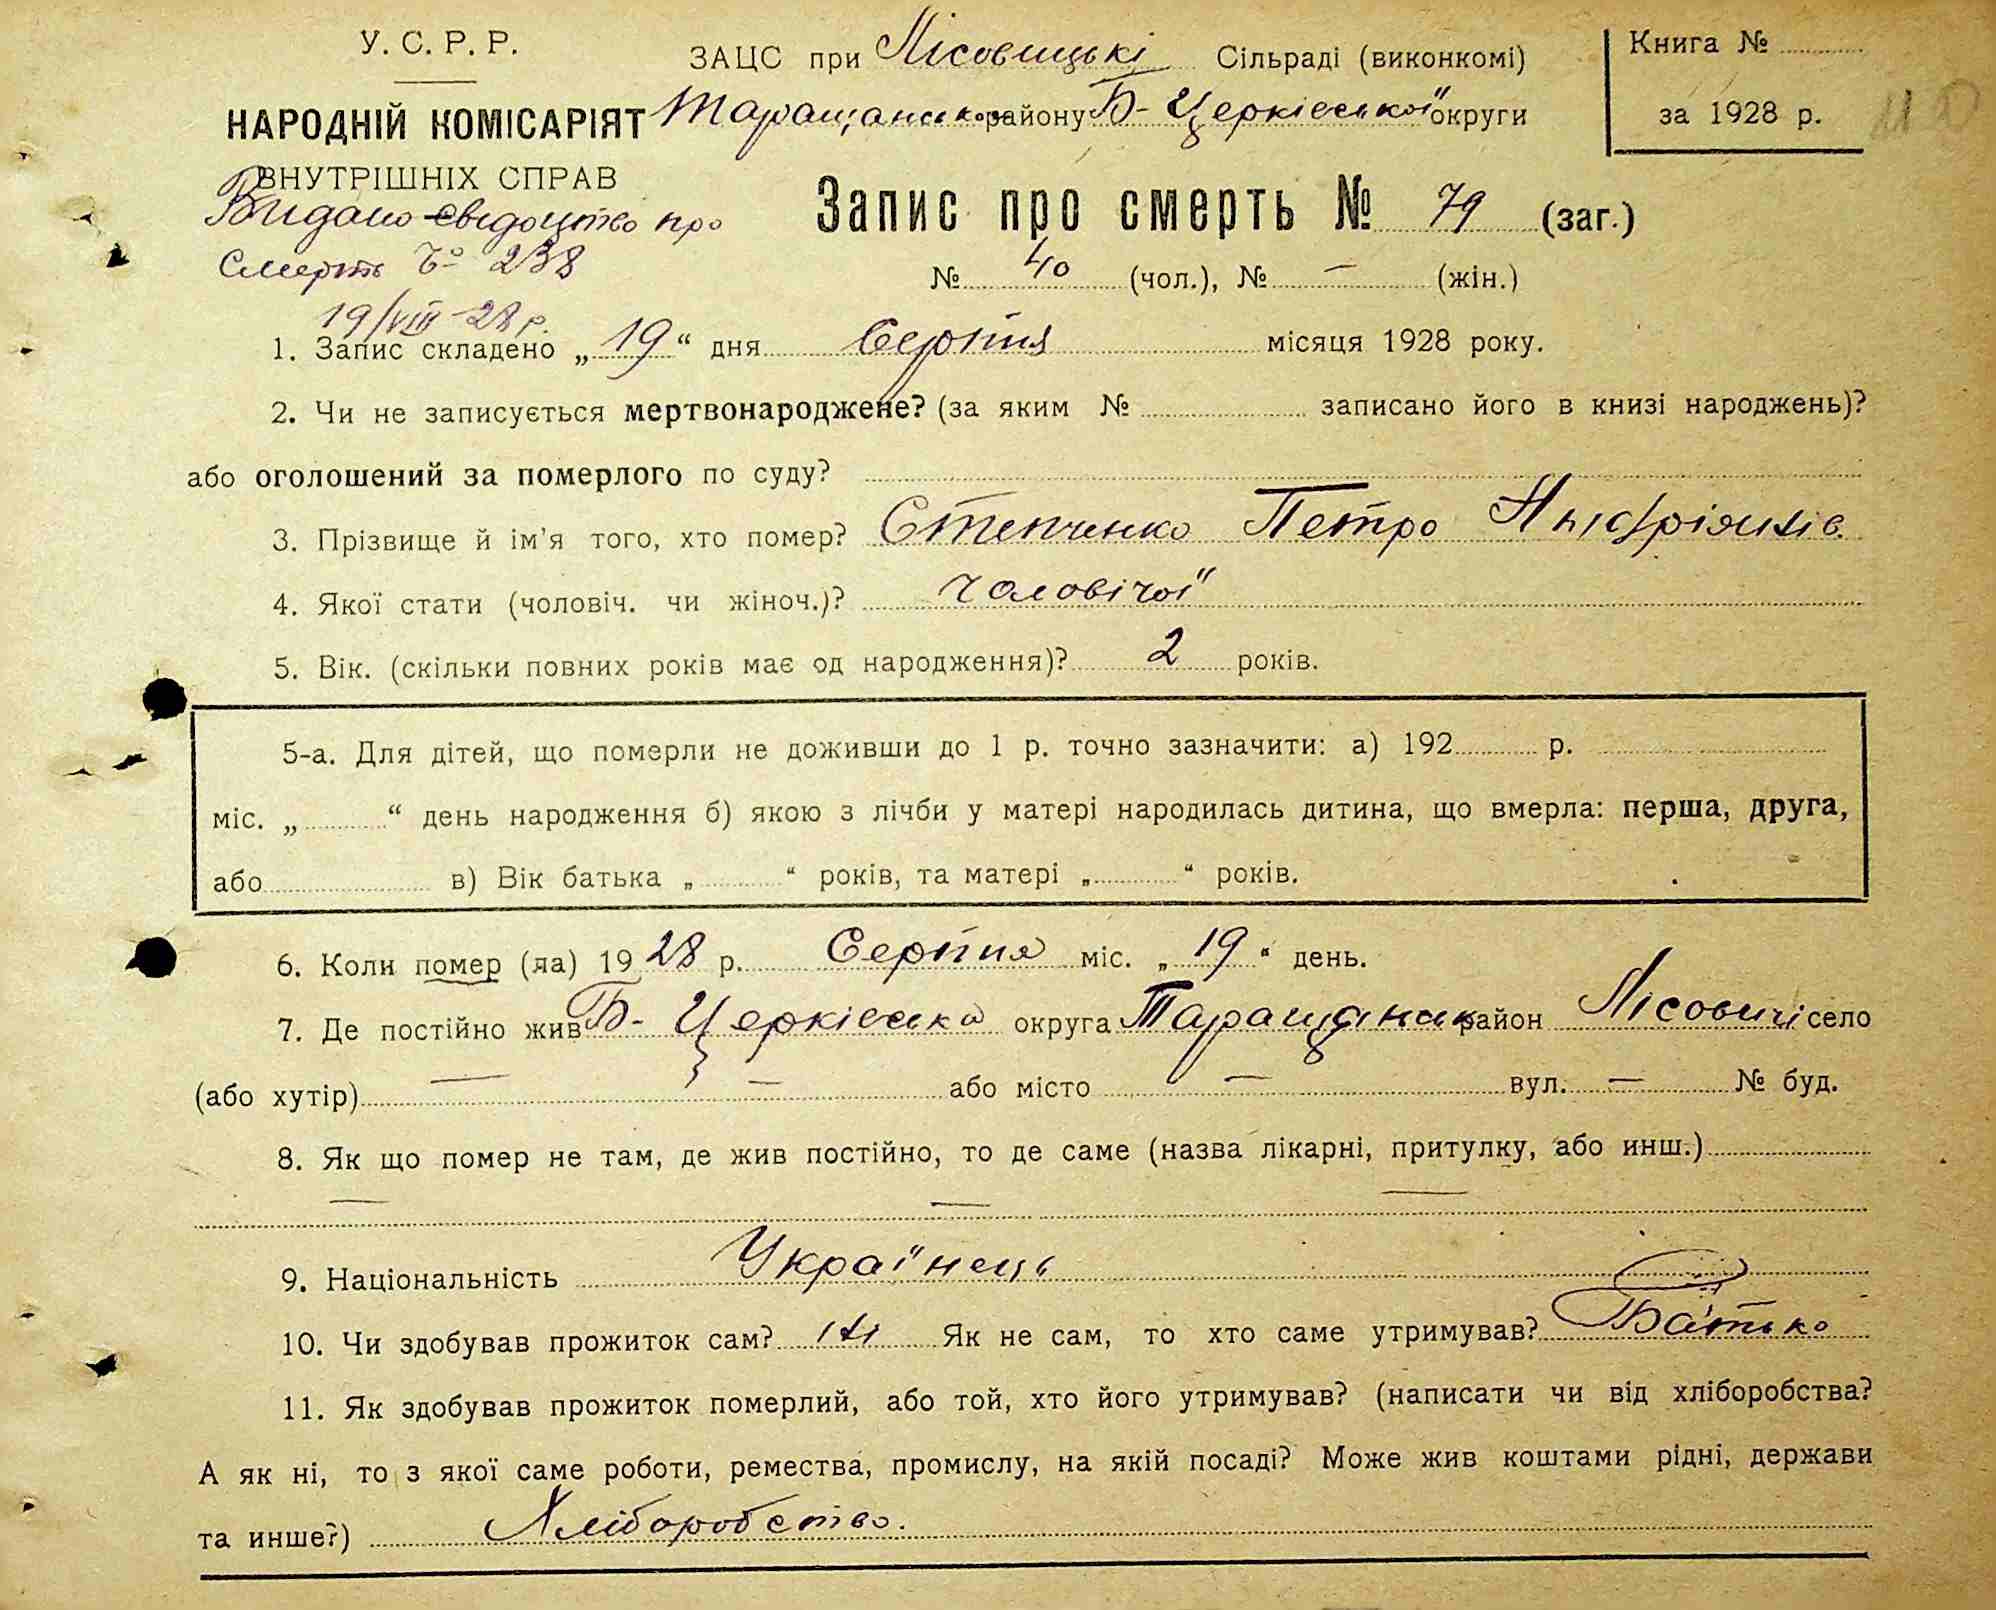 У. С. Р. Р.
НАРОДНІЙ КОМІСАРІЯТ
ВНУТРІШНІХ СПРАВ
Видано свідоцтво про
смерть № 238
19/VIII-28 р.
ЗАЦС при Лісовицькі Сільраді (виконкомі)
Таращанськ. району Б-Церківської округи
Книга №
за 1928 р.
Запис про смерть № 79 (заг.)
№ 40 (чол.), № — (жін.)
1. Запис складено „19“ дня Серпня місяця 1928 року.
2. Чи не записується мертвонароджене? (за яким № записано його в книзі народжень)?
або оголошений за померлого по суду?
3. Прізвище й ім'я того, хто помер? Степченко Петро
4. Якої стати (чоловіч. чи жіноч.)? Чоловічої
5. Вік. (скільки повних років має од народження)? 2 років.
5-а. Для дітей, що померли не доживши до 1 р. точно зазначити: а) 192 р.
міс. „ “ день народження б) якою з лічби у матері народилась дитина, що вмерла: перша, друга,
або в) Вік батька „ “ років, та матері „ “ років.
6. Коли помер (ла) 1928 р. Серпня міс. „19“ день.
7. Де постійно жив Б-Церківська округа Таращанськ район Лісовичі село
(або хутір) — — або місто — вул. — № буд.
8. Як що помер не там, де жив постійно, то де саме (назва лікарні, притулку, або инш.)
— — —
9. Національність Українець
10. Чи здобував прожиток сам? ні Як не сам, то хто саме утримував? Батько
11. Як здобував прожиток померлий, або той, хто його утримував? (написати чи від хліборобства?
А як ні, то з якої саме роботи, ремества, промислу, на якій посаді? Може жив коштами рідні, держави
та инше?) Хліборобство.